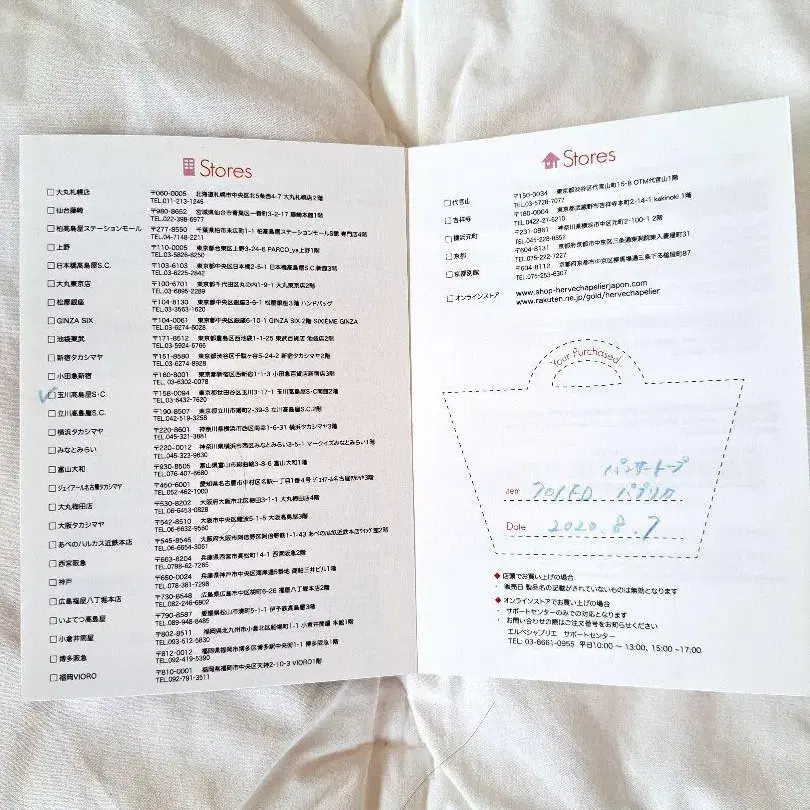 Stores
大丸札幌店 〒060-0005 北海道札幌市中央区北5条西4-7 大丸札幌店2階
TEL.011-213-1245
仙台藤崎 〒980-8652 宮城県仙台市青葉区一番町3-2-17 藤崎本館1階
TEL.022-398-6977
柏高島屋ステーションモール 〒277-8550 千葉県柏市末広町1-1 柏高島屋ステーションモールS館 専門店4階
TEL.04-7148-2211
上野 〒110-0005 東京都台東区上野3-24-6 PARCO_ya上野1階
TEL.03-5826-8250
日本橋高島屋S.C. 〒103-6103 東京都中央区日本橋2-5-1 日本橋高島屋S.C.新館3階
TEL.03-6225-2842
大丸東京店 〒100-6701 東京都千代田区丸の内1-9-1 大丸東京店2階
TEL.03-6895-2289
松屋銀座 〒104-8130 東京都中央区銀座3-6-1 松屋銀座3階 ハンドバッグ
TEL.03-3563-1620
GINZA SIX 〒104-0061 東京都中央区銀座6-10-1 GINZA SIX 2階 SIXIÈME GINZA
TEL.03-6274-6028
池袋東武 〒171-8512 東京都豊島区西池袋1-1-25 東武百貨店 池袋店2階
TEL.03-5924-6766
新宿タカシマヤ 〒151-8580 東京都渋谷区千駄ヶ谷5-24-2 新宿タカシマヤ2階
TEL.03-6274-8928
小田急新宿 〒160-8001 東京都新宿区西新宿1-1-3 小田急百貨店新宿店3階
TEL.03-6302-0078
玉川高島屋S・C 〒158-0094 東京都世田谷区玉川3-17-1 玉川高島屋S・C南館2階
TEL.03-6432-7620
立川高島屋S.C. 〒190-8507 東京都立川市曙町2-39-3 立川高島屋S.C.2階
TEL.042-519-3258
横浜タカシマヤ 〒220-8601 神奈川県横浜市西区南幸1-6-31 横浜タカシマヤ3階
TEL.045-321-3881
みなとみらい 〒220-0012 神奈川県横浜市西区みなとみらい3-5-1 マークイズみなとみらい1階
TEL.045-323-9630
富山大和 〒930-8505 富山県富山市総曲輪3-8-6 富山大和1階
TEL.076-407-5680
ジェイアール名古屋タカシマヤ 〒450-6001 愛知県名古屋市中村区名駅一丁目1番4号 ジェイアール名古屋タカシマヤ3階
TEL.052-462-1000
大丸梅田店 〒530-8202 大阪府大阪市北区梅田3-1-1 大丸梅田店4階
TEL.06-6453-0828
大阪タカシマヤ 〒542-8510 大阪市中央区難波5-1-5 大阪高島屋3階
TEL.06-6632-9560
あべのハルカス近鉄本店 〒545-8545 大阪府大阪市阿倍野区阿倍野筋1-1-43 あべのハルカス近鉄本店ウイング館2階
TEL.06-6654-3051
西宮阪急 〒663-8204 兵庫県西宮市高松町14-1 西宮阪急2階
TEL.0798-62-7265
神戸 〒650-0024 兵庫県神戸市中央区海岸通5番地 商船三井ビル1階
TEL.078-381-7298
広島福屋八丁堀本店 〒730-8548 広島県広島市中区胡町6-26 福屋八丁堀本店2階
TEL.082-246-6802
いよてつ高島屋 〒790-8587 愛媛県松山市湊町5-1-1 伊予鉄高島屋3階
TEL.089-948-8485
小倉井筒屋 〒802-8511 福岡県北九州市小倉北区船場町1-1 小倉井筒屋 本館1階
TEL.093-512-5830
博多阪急 〒812-0012 福岡県福岡市博多区博多駅中央街1-1 博多阪急1階
TEL.092-419-5390
福岡VIORO 〒810-0001 福岡県福岡市中央区天神2-10-3 VIORO1階
TEL.092-791-3511
Stores
代官山 〒150-0034 東京都渋谷区代官山町15-8 OTM代官山1階
TEL.03-5728-7077
吉祥寺 〒180-0004 東京都武蔵野市吉祥寺本町2-14-1 kakinoki 1階
TEL.0422-21-6210
横浜元町 〒231-0861 神奈川県横浜市中区元町2-100-1 2階
TEL.045-228-8857
京都 〒604-8131 京都府京都市中京区三条通東洞院東入菱屋町31
TEL.075-222-7227
京都別館 〒604-8112 京都府京都市中京区柳馬場通三条下る槌屋町87
TEL.075-253-6307
オンラインストア www.shop-hervechapelierjapon.com
www.rakuten.ne.jp/gold/hervechapelier
Your Purchased
パンサートープ
Item 701FD パプリカ
Date 2020.8.7
◆店頭でお買い上げの場合
・ 販売日 製品名の記載がされていないものは無効となります
◆オンラインストアでお買い上げの場合
・ サポートセンターのみでの対応となります
・ お問い合わせの際はご注文番号をお知らせください
エルベシャプリエ サポートセンター
TEL: 03-6661-0955 平日10:00 ~ 13:00、15:00 ~17:00